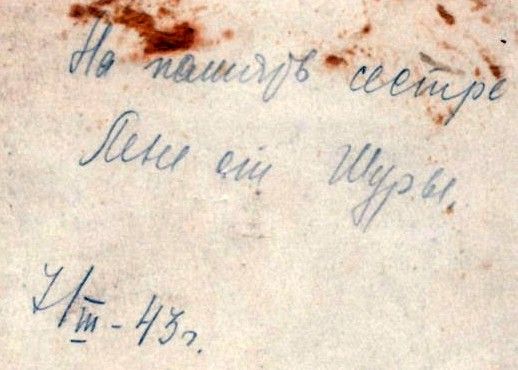 На память сестре
Лене от Шуры.
7/III-43г.